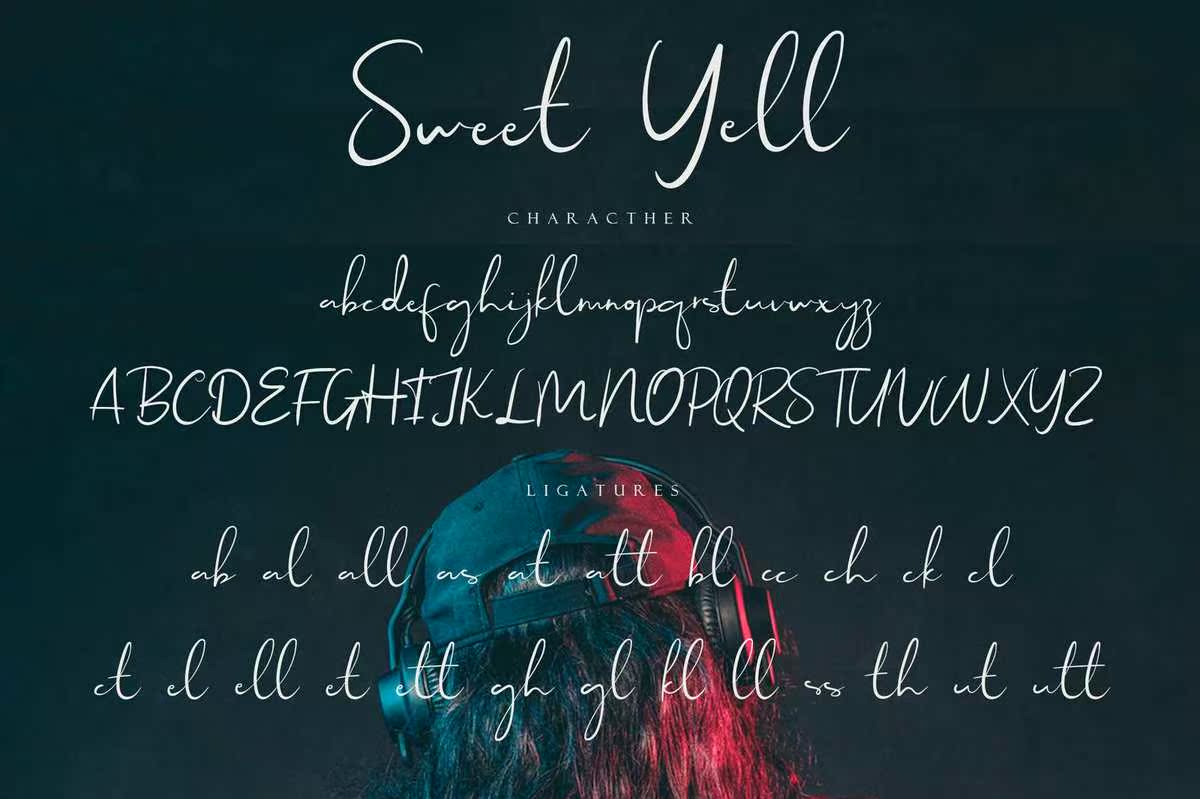 Sweet Yell
CHARACTHER
abcdefghijklmnopqrstuvwxyz
ABCDEFGHIJKLMNOPQRSTUVWXYZ
LIGATURES
ab al all as at att bl cc ch ck cl
ct el ell et ett gh gl kl ll ss th ut utt